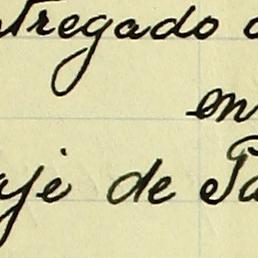 tregado
en
aje de Pa